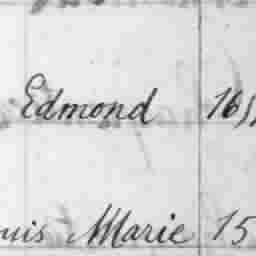 Edmond 165
uis Marie 15